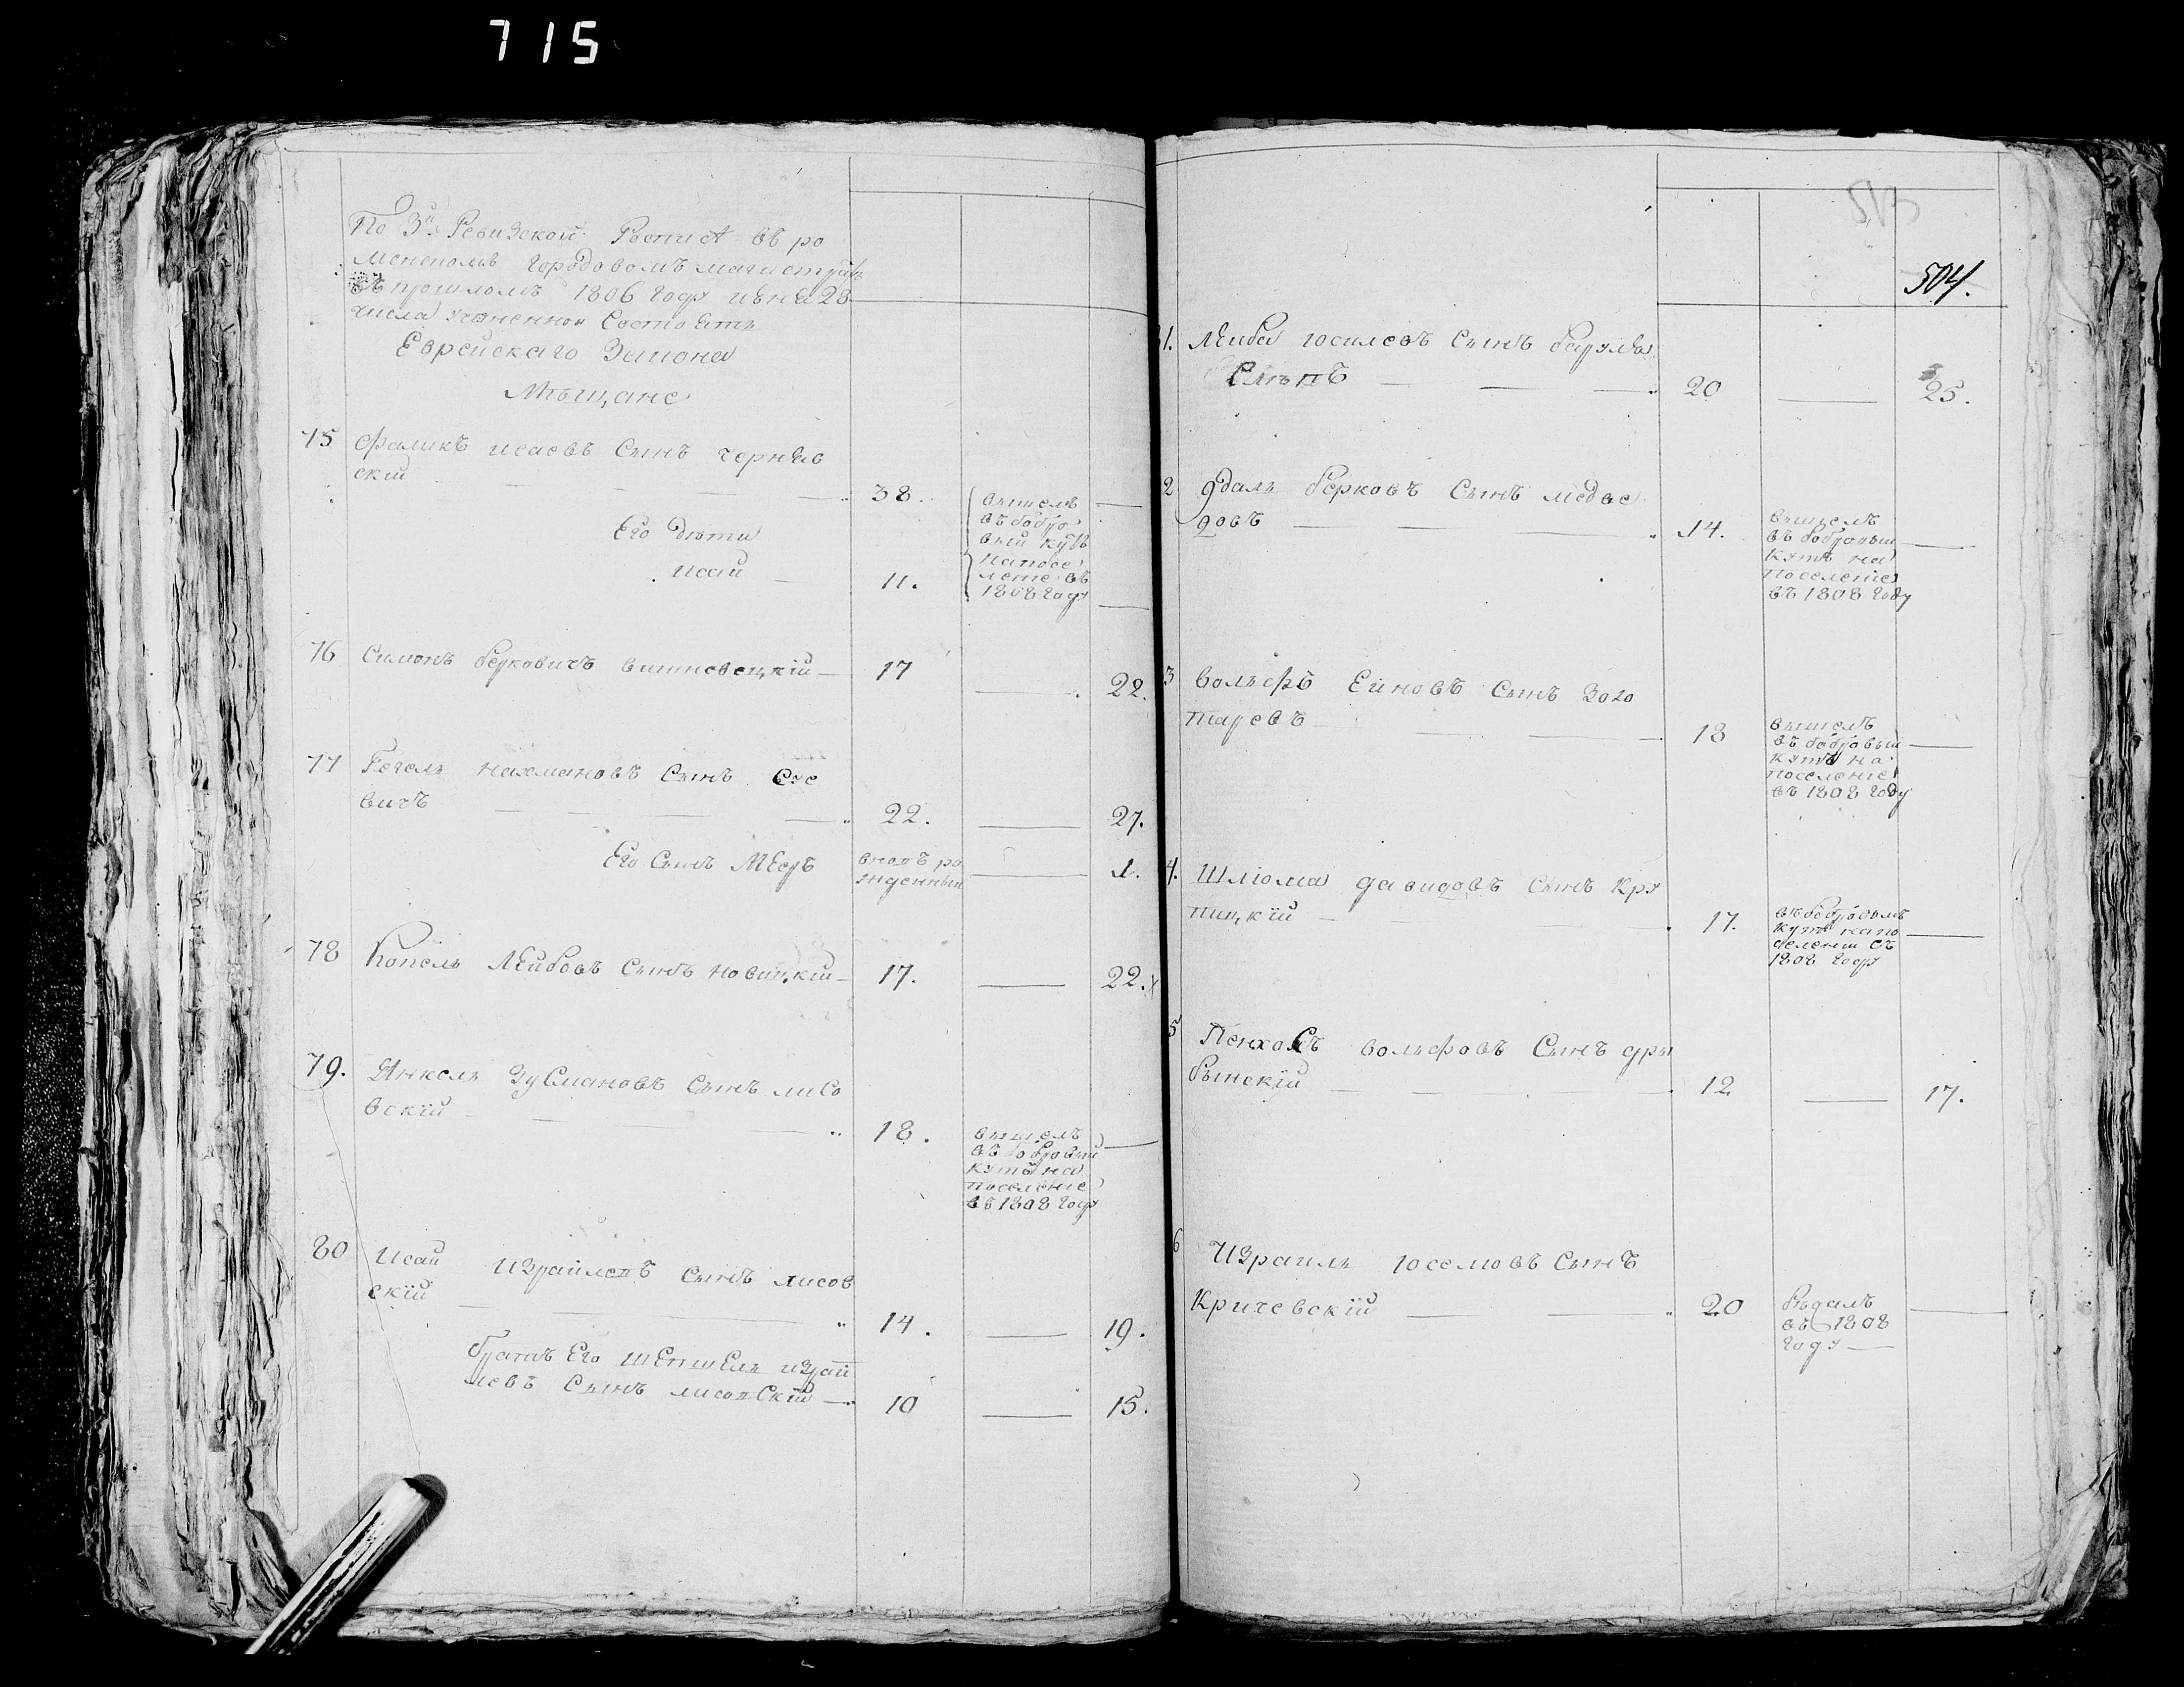 715
По 3й Ревизской Росписѣ въ ро
менскомъ городовомъ магистратѣ
въ прошломъ 1806 году июня 28
числа учиненной Состоитъ
Еврейскаго Закона
Мѣщане
75 Фаликъ исаевъ Сынъ чернѣв
скій 38.
вышелъ
въ бобро
вый кутъ
на посе
ление въ
1808 году
Его дѣти
исай 11.
76 Симонъ берковичъ вишневецкій 17 22.
77 Гечель нахмановъ Сынъ Сус
вичъ 22. 27.
Его Сынъ Мееръ вновъ ро
жденный 1.
78 Копель Лейбовъ Сынъ новицкій 17. 22.
79. Янкель Зусмановъ Сынъ лисо
вскій 18.
вышелъ
въ бобровый
кутъ на
поселение
въ 1808 году
80 Исай Израйлевъ Сынъ лисов
скій 14. 19.
братъ Его шепшель израй
левъ Сынъ лисовскій 10 15.
513
504.
1. Лейба иосилевъ Сынъ
20 25.
2 Юдаль берковъ Сынъ медве
довъ 14.
вышелъ
въ бобровый
кутъ на
поселение
въ 1808 году
3 Вольфъ Ейновъ Сынъ Золо
таревъ 13
вышелъ
въ бобровый
кутъ на
поселение
въ 1808 году
4. Шлиома давидовъ Сынъ Кру
пицкій 17.
въ бобровомъ
кутѣ на по
селении съ
1808 году
5 Пенхосъ вольфовъ Сынъ дры
бынскій 12 17.
6 Израиль иоселиовъ Сынъ
Кричевскій 20
въ 1808
году